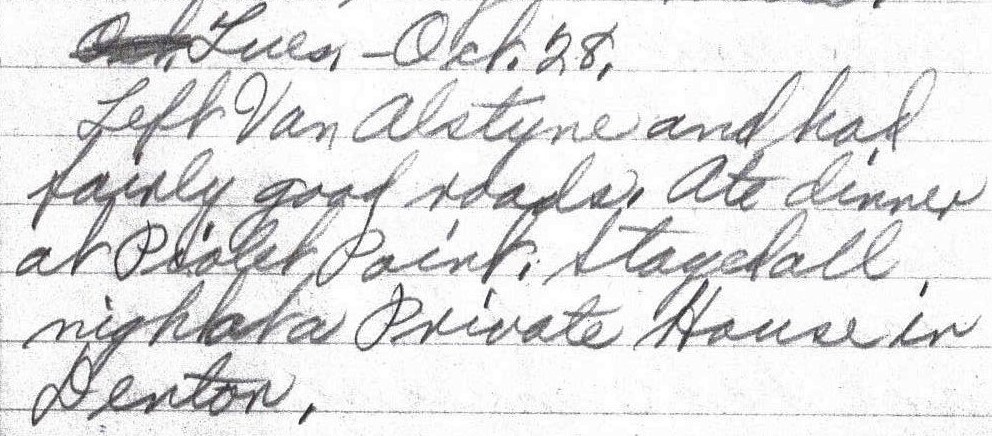 Tues. - Oct. 28.
Left Van Alstyne and had
fairly good roads. Ate dinner
at Piolet Point. Stayed all
night at a Private House in
Denton.